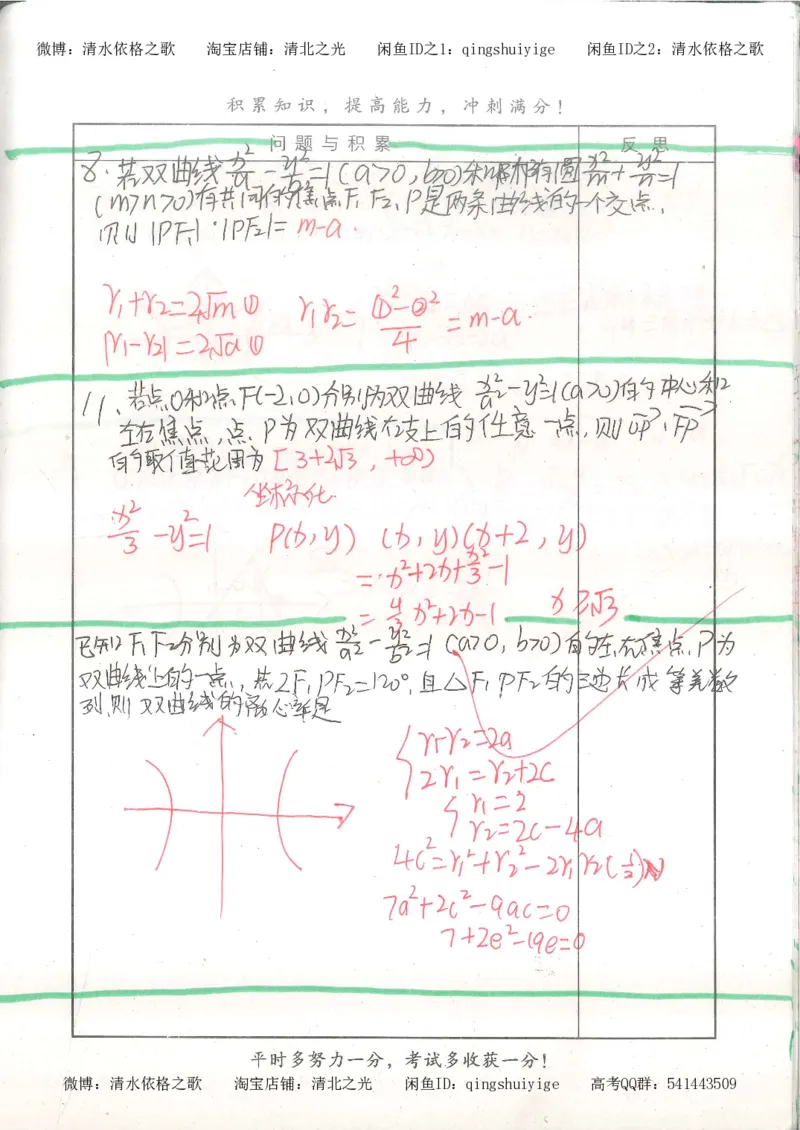 微博：清水依格之歌 淘宝店铺：清北之光 闲鱼ID之1：qingshuiyige 闲鱼ID之2：清水依格之歌
积累知识，提高能力，冲刺满分！
问题与积累 反思
8. 若双曲线 x²/a - y²/b =1 (a>0, b>0)和椭圆 x²/m + y²/n =1
(m>n>0)有共同的焦点F₁ F₂, P是两条曲线的一个交点,
则 |PF₁|·|PF₂|= m-a.
r₁+r₂=2√m ① r₁r₂= (①²-②²)/4 = m-a.
|r₁-r₂|=2√a ①
11、若点O和点F(-2,0)分别为双曲线 x²/a² - y²=1(a>0)的中心和
左焦点,点P为双曲线右支上的任意一点,则 OP·FP
的取值范围为 [3+2√3, +∞)
坐标
x²/3 - y²=1 P(x,y) (x,y)(x+2,y)
=x²+2x+x²/3-1
=4/3x²+2x-1 x≥√3
已知F₁F₂分别为双曲线 x²/a² - y²/b² =1 (a>0, b>0)的左、右焦点,P为
双曲线上的一点,若∠F₁PF₂=120°,且△F₁PF₂的三边长成等差数
列,则双曲线的离心率是
r₁-r₂=2a
2r₁=r₂+2c
r₁=2
r₂=2c-4a
4c²=r₁²+r₂²-2r₁r₂(-1/2)
7a²+2c²-9ac=0
7+2e²-9e=0
平时多努力一分，考试多收获一分！
微博：清水依格之歌 淘宝店铺：清北之光 闲鱼ID：qingshuiyige 高考QQ群：541443509